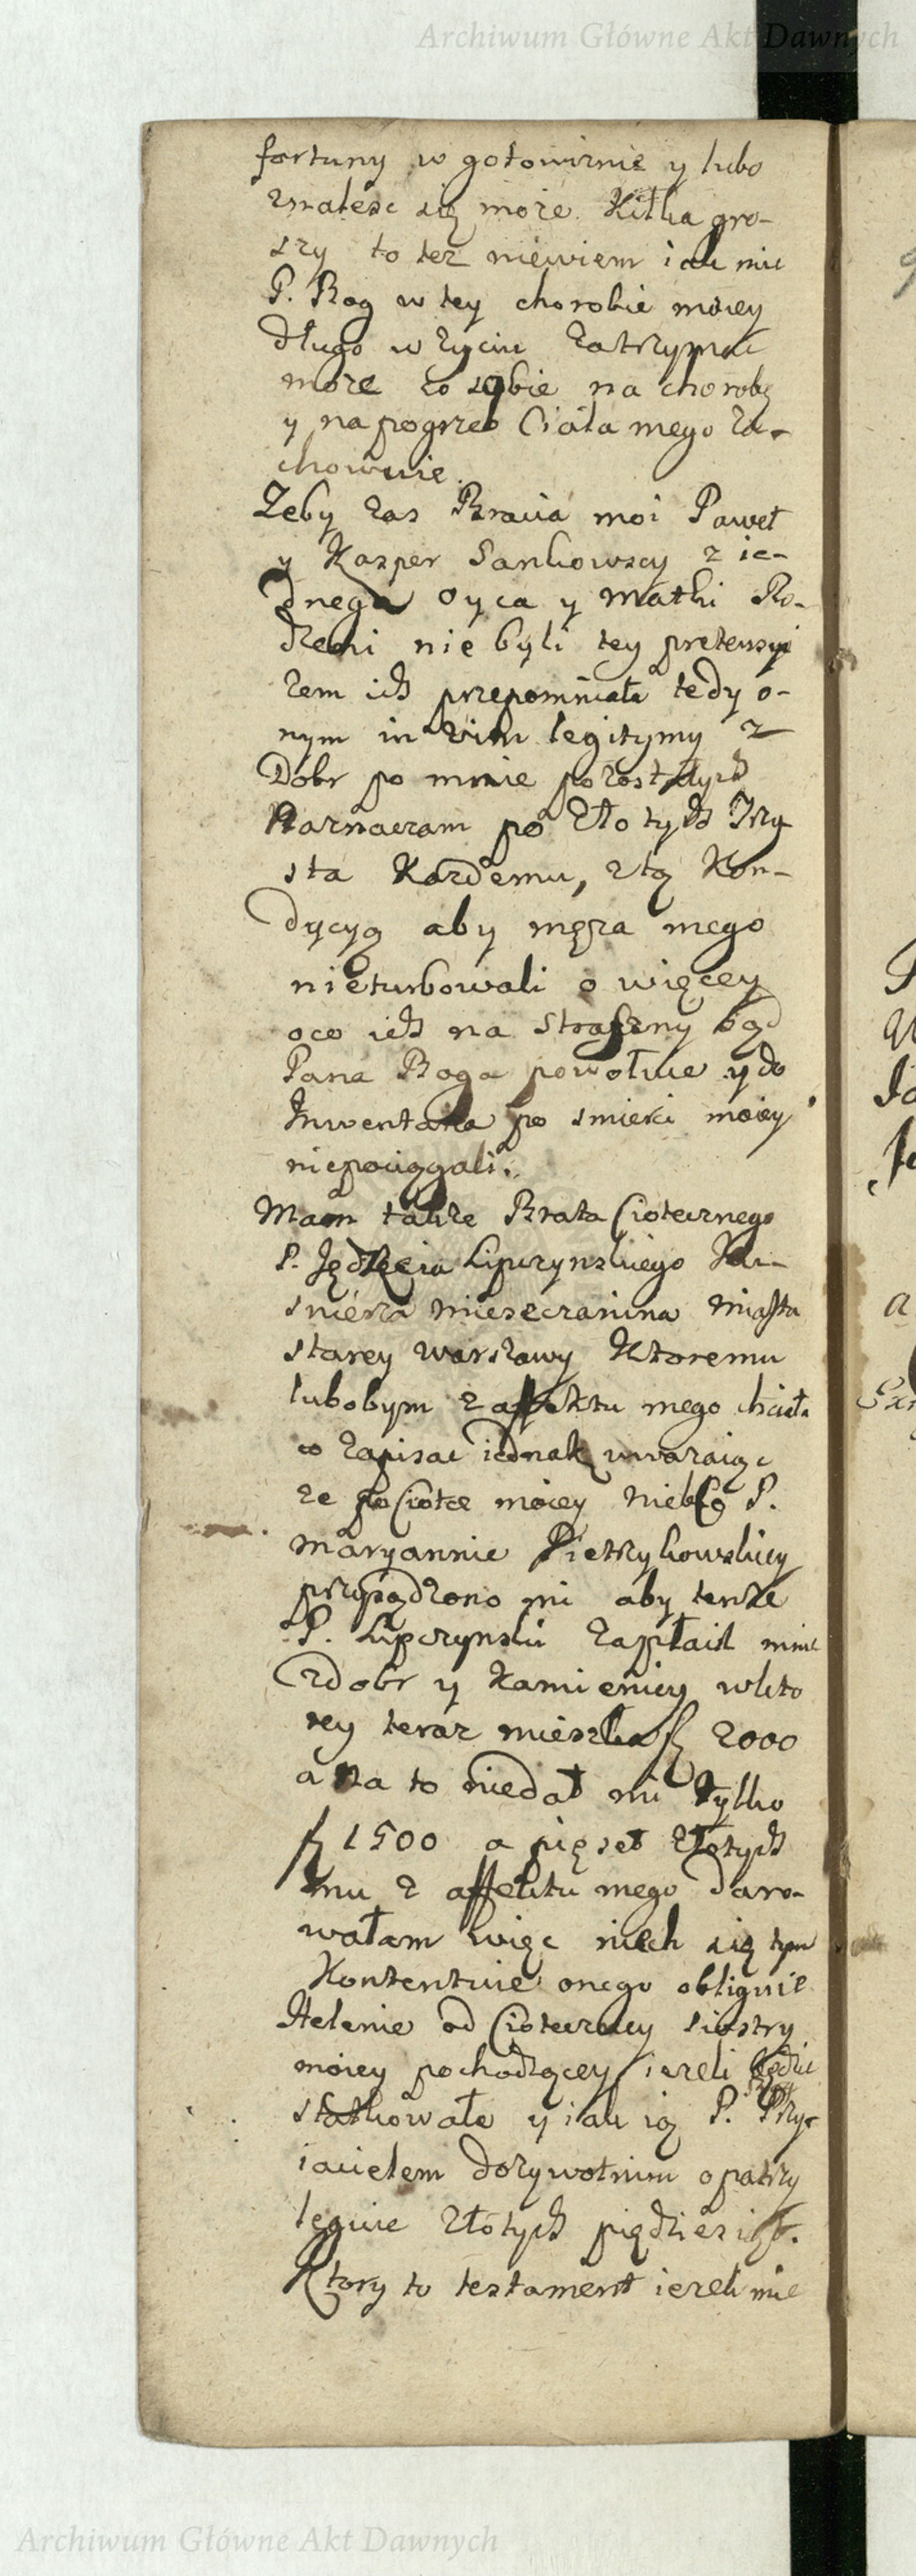 Archiwum Główne Akt Dawnych
fortuny w gotowiznie y lubo
znalesc się może Kilka gro-
szy to tez niewiem iak mie
P. Bog w tey chorobie moiey
długo w zyciu zatrzymac
może to sobie na chorobę
y na pogrzeb Ciała mego za-
chowuie.
Zeby zas Bracia moi Paweł
y Kasper Sankowscy z ie-
dnego oyca y Matki Ro-
dzeni nie byli tey pretensyi
zem ich przepomniała tedy o-
nym in vim legitymy z
Dobr po mnie pozostałych
Naznaczam po Złotych Trzy
sta Kazdemu, z tą Kon-
dycyą aby męza mego
nieturbowali o więcey
oco ich na Straszny Sąd
Pana Boga powołuie y do
Inwentarza po smierci moiey
niepociągali.
Mam takze Brata Ciotecznego
P. Jędrzeia Lipczynskiego Ku-
snierza Mieszczanina Miasta
starey Warszawy Ktoremu
lubobym z affektu mego chciała
co zapisac iednak uwazaiąc
ze po Ciotce moiey Niebo P.
Maryannie Pietrzykowskiey
przysądzono mi aby tenze
P. Lipczynski zapłacił mnie
z dobr y Kamienicy wkto
rey teraz mieszka fl 2000
a na to niedał mi tylko
fl 1500 a pięset złotych
mu z affektu mego daro-
wałam więc niech się tym
Kontentuie onego obliguie
Helenie od Cioteczney siostry
moiey pochodzącey iezeli będzie
statkowała y iak ią P. Bog Przy-
iacielem dozywotnim opatrzy
leguie Złotych piędziesiąt.
Ktory to testament iezeli nie
Archiwum Główne Akt Dawnych